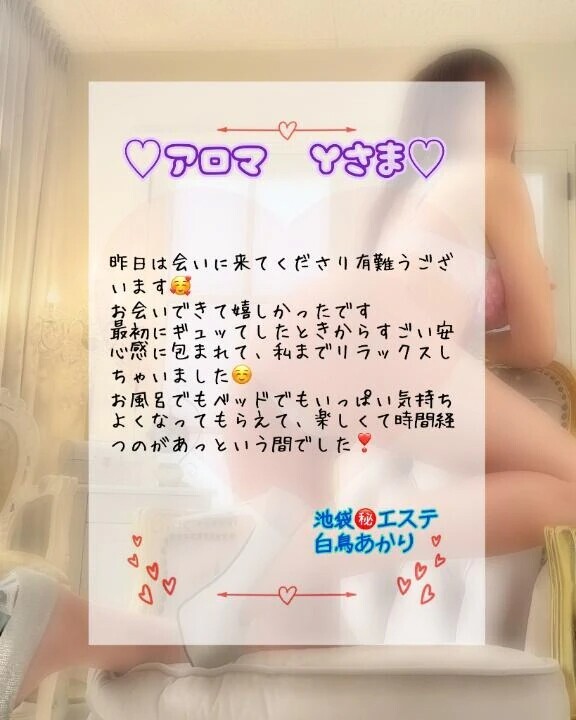 ♡アロマ Yさま♡
昨日は会いに来てくださり有難うござ
います🥰
お会いできて嬉しかったです
最初にギュッてしたときからすごい安
心感に包まれて、私までリラックスし
ちゃいました☺️
お風呂でもベッドでもいっぱい気持ち
よくなってもらえて、楽しくて時間経
つのがあっという間でした❣️
池袋㊙️エステ
白鳥あかり